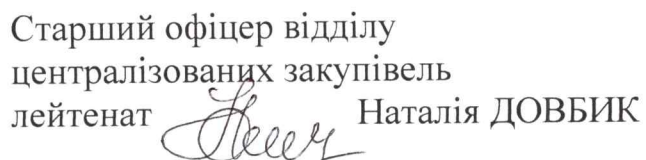 Старший офіцер відділу
централізованих закупівель
лейтенат Наталія ДОВБИК